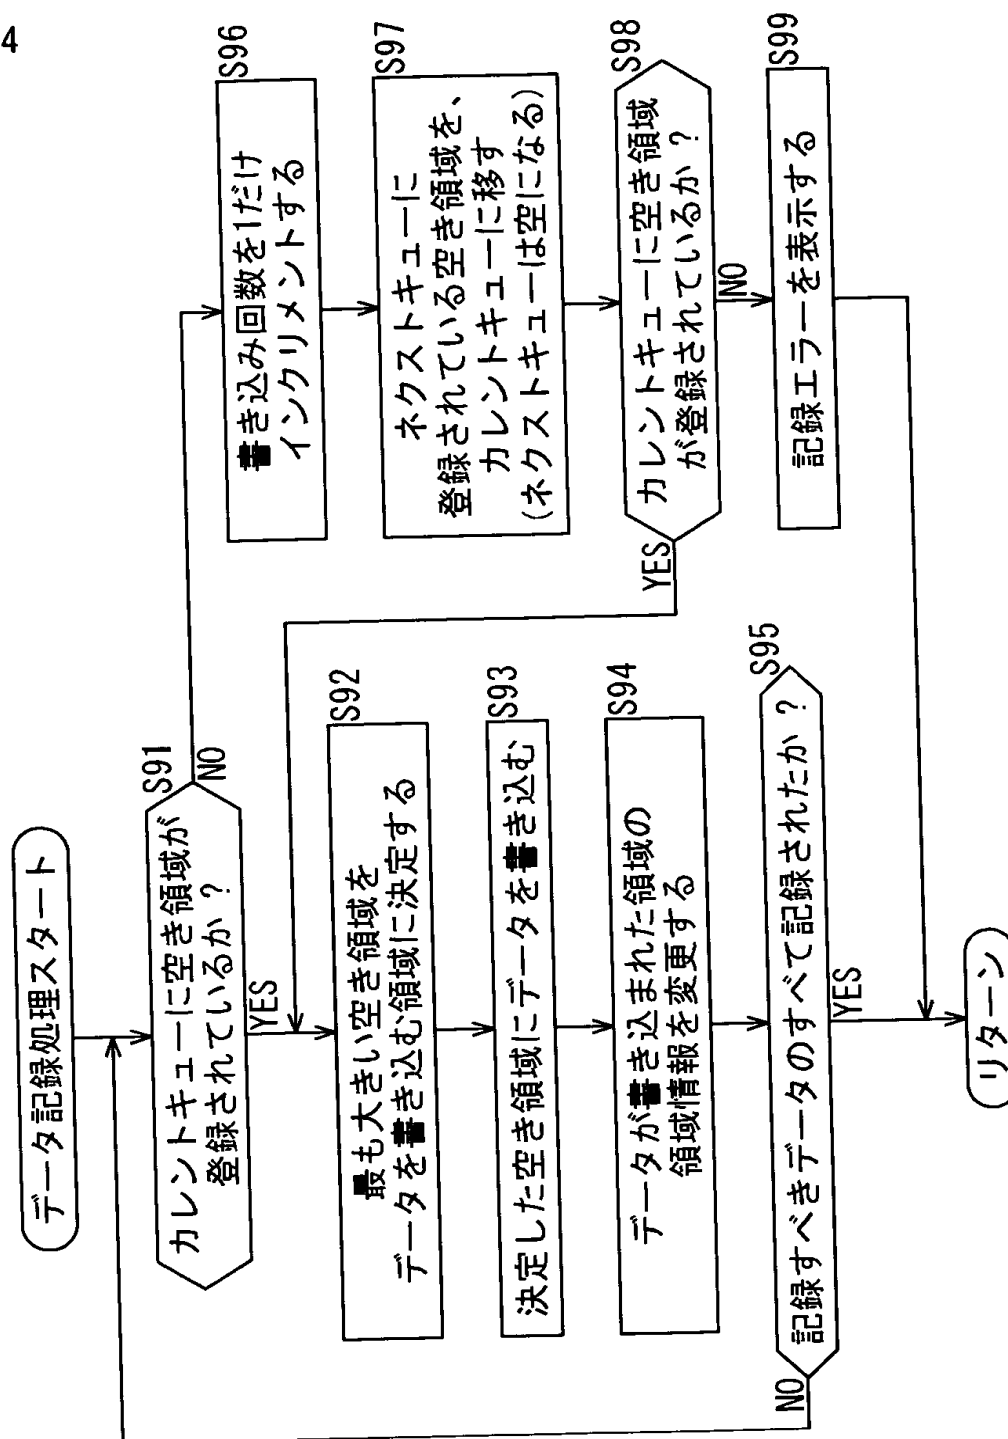 4
データ記録処理スタート
S91
カレントキューに空き領域が
登録されているか?
NO
YES
S92
最も大きい空き領域を
データを書き込む領域に決定する
S93
決定した空き領域にデータを書き込む
S94
データが書き込まれた領域の
領域情報を変更する
S95
記録すべきデータのすべて記録されたか?
NO
YES
リターン
S96
書き込み回数を1だけ
インクリメントする
S97
ネクストキューに
登録されている空き領域を、
カレントキューに移す
(ネクストキューは空になる)
S98
カレントキューに空き領域
が登録されているか?
YES
NO
S99
記録エラーを表示する